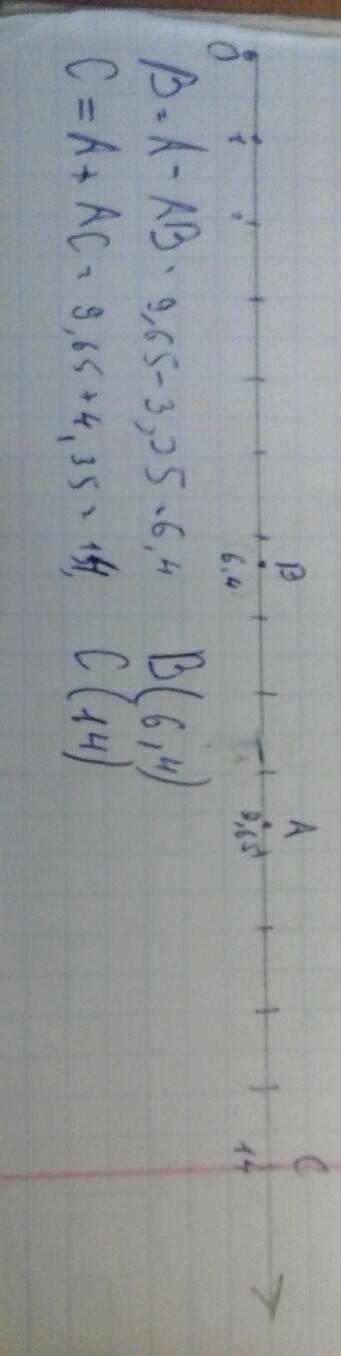 B A C
0 1 6,4 9,65 14
B = A - AB = 9,65 - 3,25 = 6,4 B(6,4)
C = A + AC = 9,65 + 4,35 = 14 C(14)